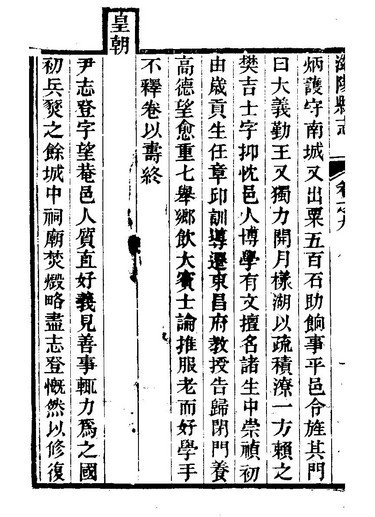 炳護守南城又出粟五百石助餉事平邑令旌其門
曰大義勤王又獨力開月樣湖以疏積潦一方賴之
樊吉士字抑忱邑人博學有文擅名諸生中崇禎初
由歲貢生任章邱訓導遷東昌府教授告歸閉門養
高德望愈重七舉鄉飲大賓士論推服老而好學手
不釋卷以壽終
皇朝
尹志登字望菴邑人質直好義見善事輒力爲之國
初兵燹之餘城中祠廟焚燬略盡志登慨然以修復